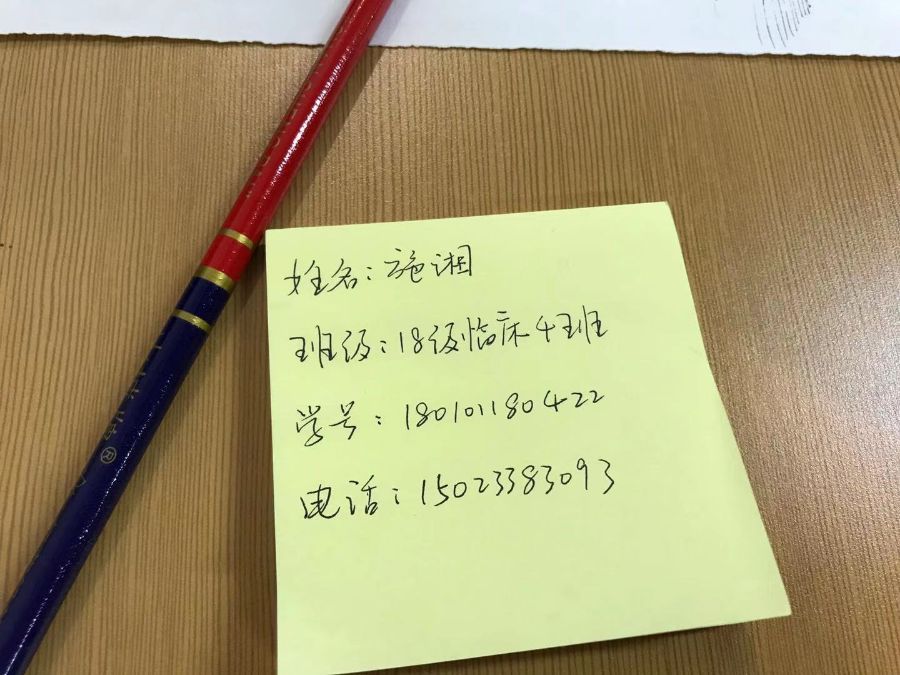 姓名：施湘
班级：18级临床4班
学号：180101180422
电话：15023383093
®